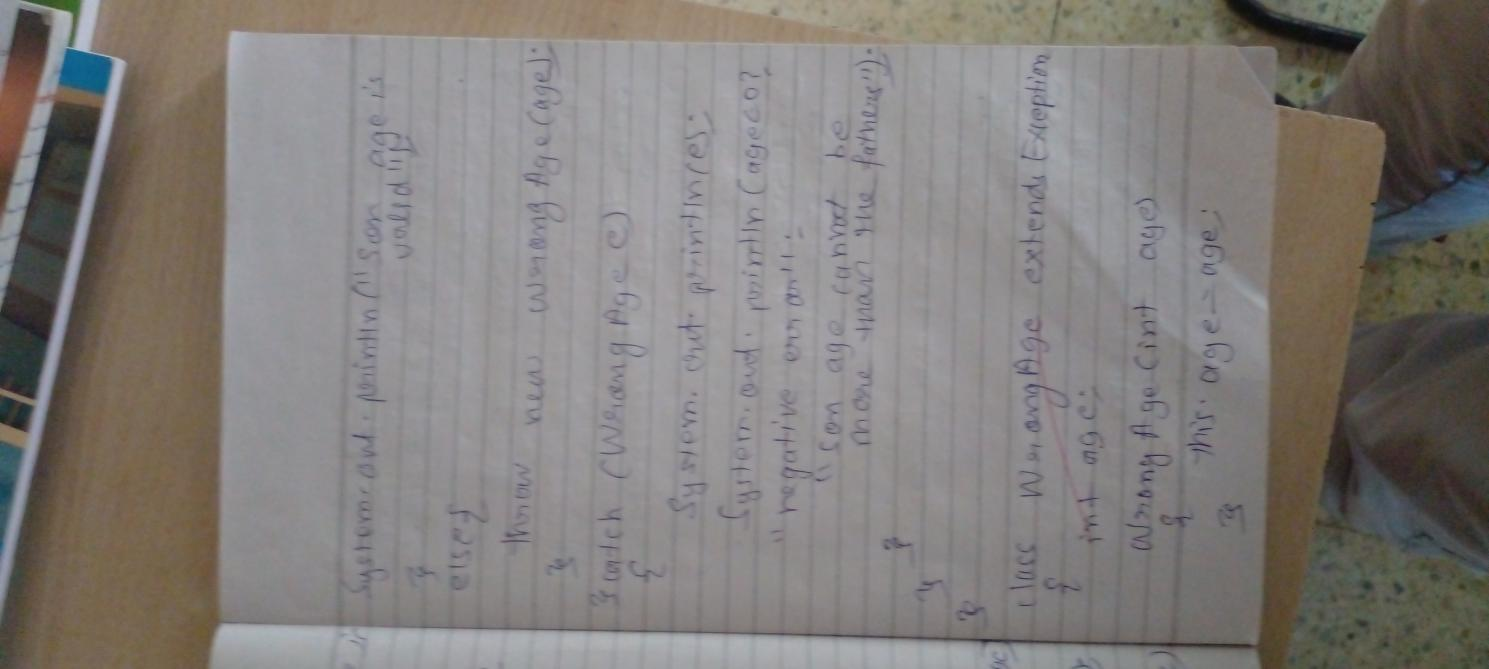 System.out.println("Son age is
valid");
}
else{
throw new WrongAge(age);
}
}catch (WrongAge e)
{
System.out.println(e);
System.out.println(age<0?
"negative error":
"Son age cannot be
more than the fathers");
}
}
}
class WrongAge extends Exception
{
int age;
WrongAge(int age)
{
this.age=age;
}